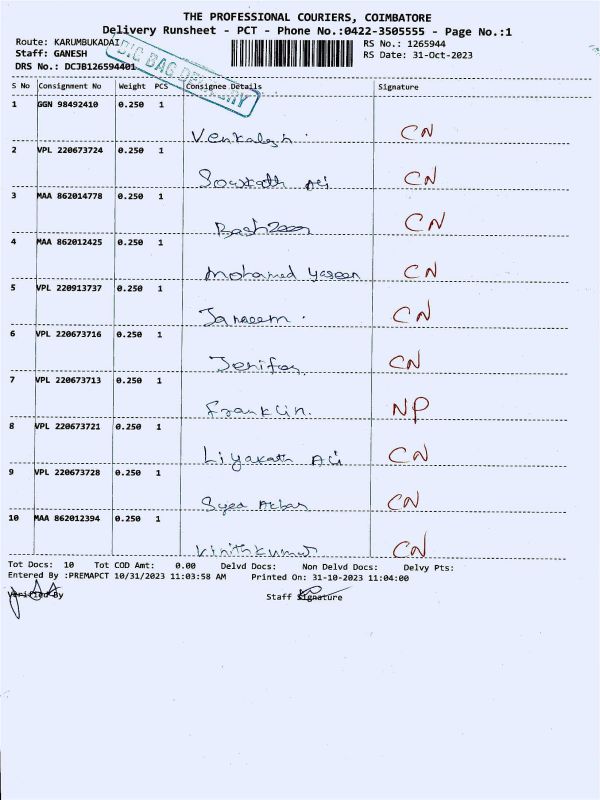 THE PROFESSIONAL COURIERS, COIMBATORE
Delivery Runsheet - PCT - Phone No.:0422-3505555 - Page No.:1
Route: KARUMBUKADAI RS No.: 1265944
Staff: GANESH RS Date: 31-Oct-2023
DRS No.: DCJB126594401
BIG BAG DELIVERY
S No Consignment No Weight PCS Consignee Details Signature
1 GGN 98492410 0.250 1
Venkatesh. CN
2 VPL 220673724 0.250 1
Sowkath Ali CN
3 MAA 862014778 0.250 1
CN
4 MAA 862012425 0.250 1
Mohamed yaseen CN
5 VPL 220913737 0.250 1
CN
6 VPL 220673716 0.250 1
Jenifer CN
7 VPL 220673713 0.250 1
Franklin. NP
8 VPL 220673721 0.250 1
Liyakath Ali CN
9 VPL 220673728 0.250 1
Syed Akbar CN
10 MAA 862012394 0.250 1
Vinithkumar CN
Tot Docs: 10 Tot COD Amt: 0.00 Delvd Docs: Non Delvd Docs: Delvy Pts:
Entered By :PREMAPCT 10/31/2023 11:03:58 AM Printed On: 31-10-2023 11:04:00
Verified By Staff Signature